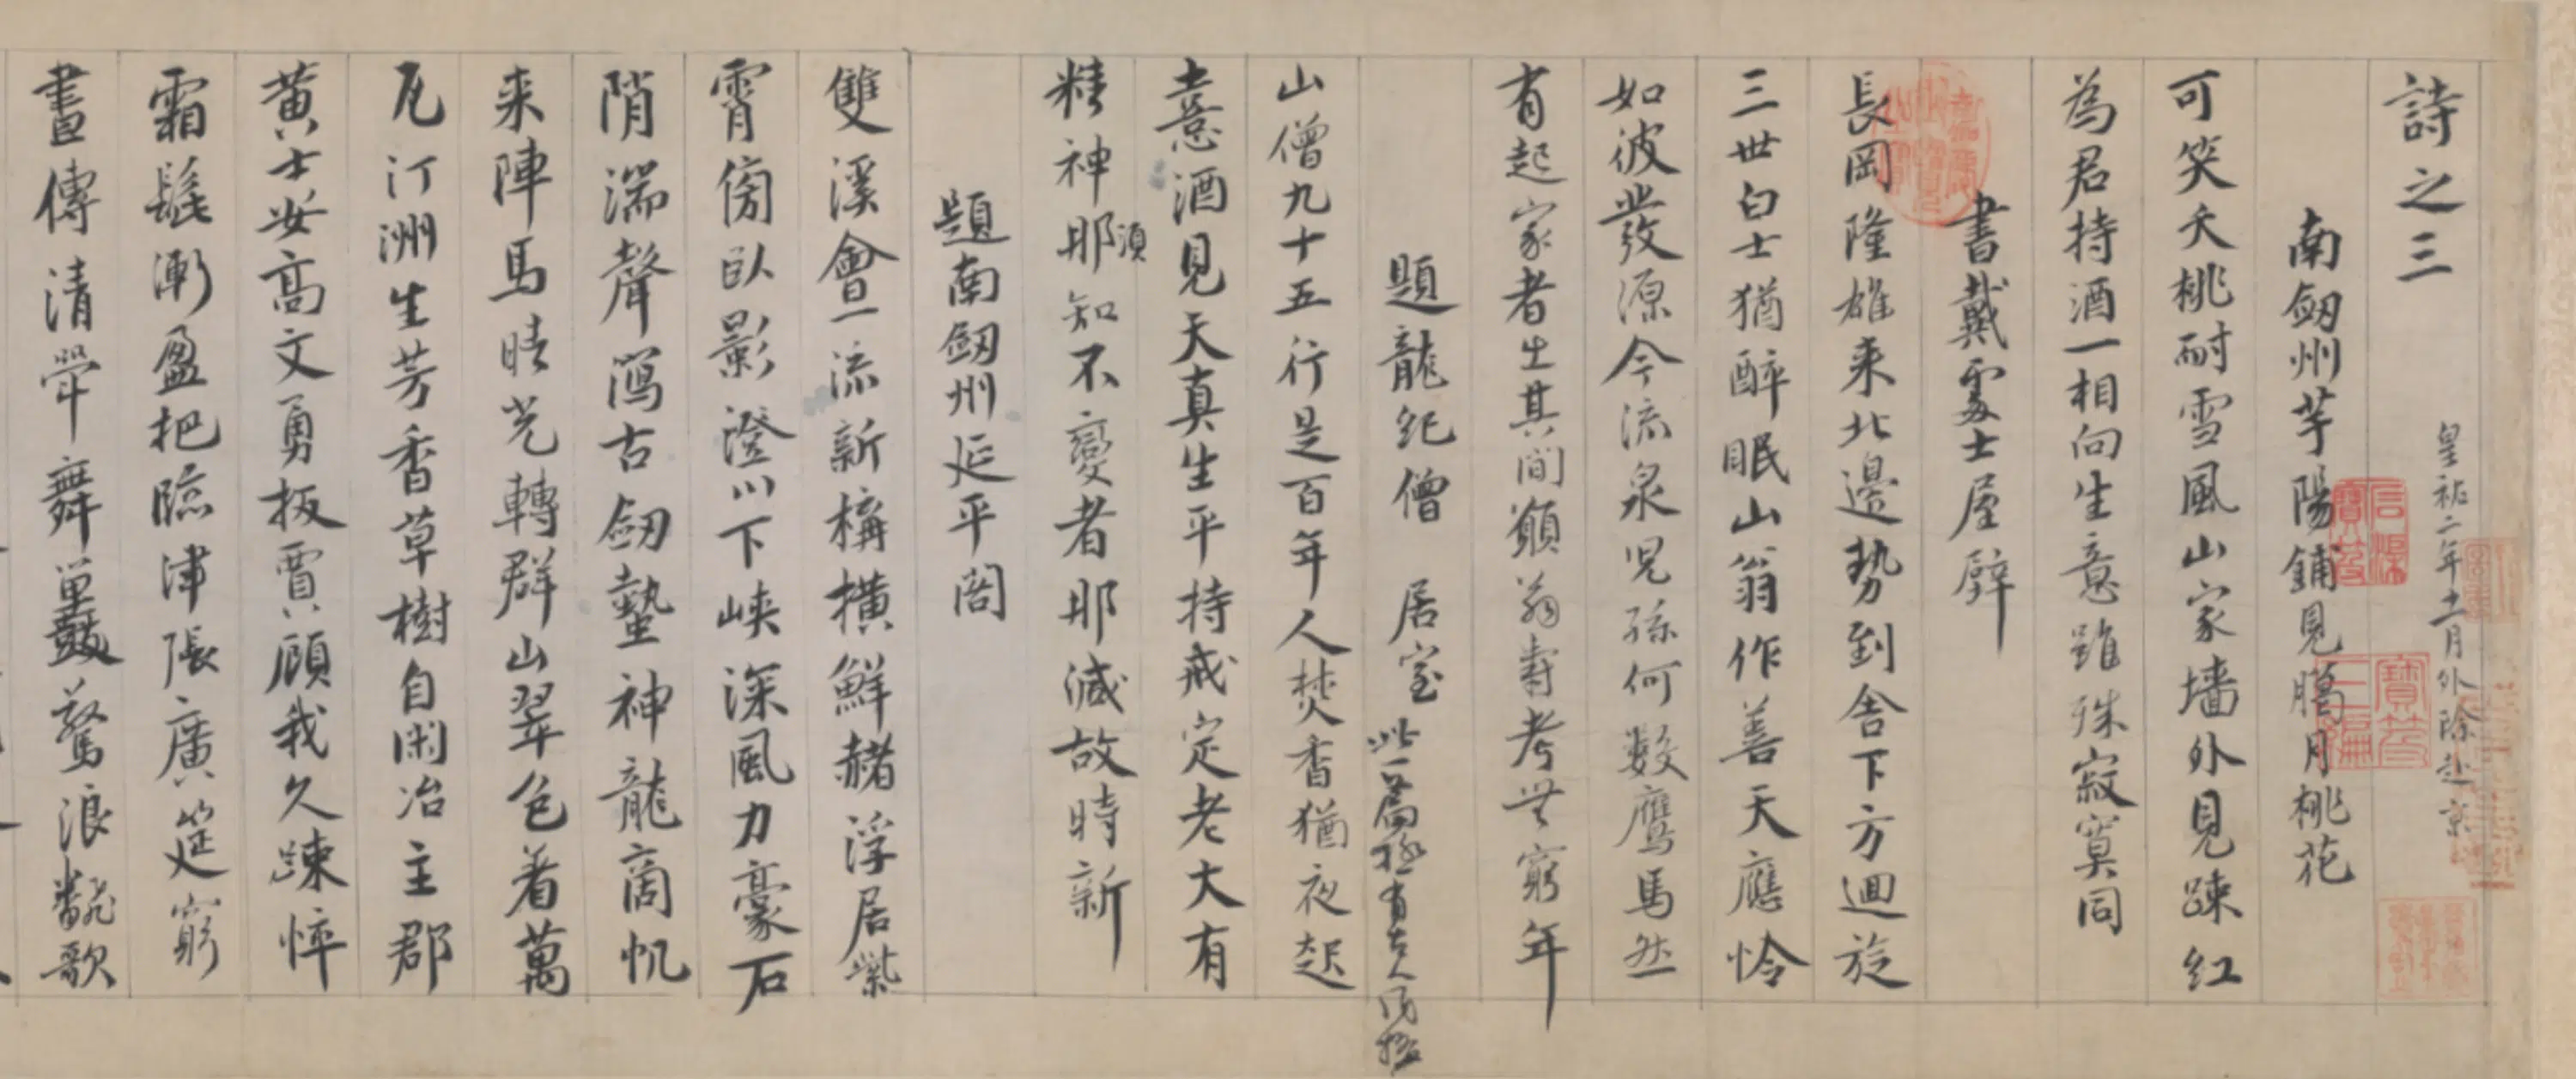 詩之三
皇祐二年十一月外除赴京
南劔州芋陽鋪見臘月桃花
可笑夭桃耐雪風山家墻外見踈紅
為君持酒一相向生意雖殊寂寞同
書戴處士屋壁
長岡隆雄来北邊勢到舍下方迴旋
三世白士猶醉眠山翁作善天應怜
如彼發源今流泉兒孫何數鷹馬然
有起家者出其間願翁壽考無窮年
題龍紀僧居室
此一篇極有古人風格
山僧九十五行是百年人焚香猶夜起
憙酒見天真生平持戒定老大有
精神那知不變者那減故時新
須
題南劔州延平閣
雙溪會一流新構横鮮赭浮居紫
霄傍臥影澄川下峽深風力豪石
陗湍聲瀉古劔蟄神龍商帆
来陣馬晴光轉群山翠色着萬
瓦汀洲生芳香草樹自閑冶主郡
黄士安高文勇扳賈顧我久踈悴
霜髭漸盈把臨津張廣筵窮
晝傳清斚舞鼉驚浪翻歌